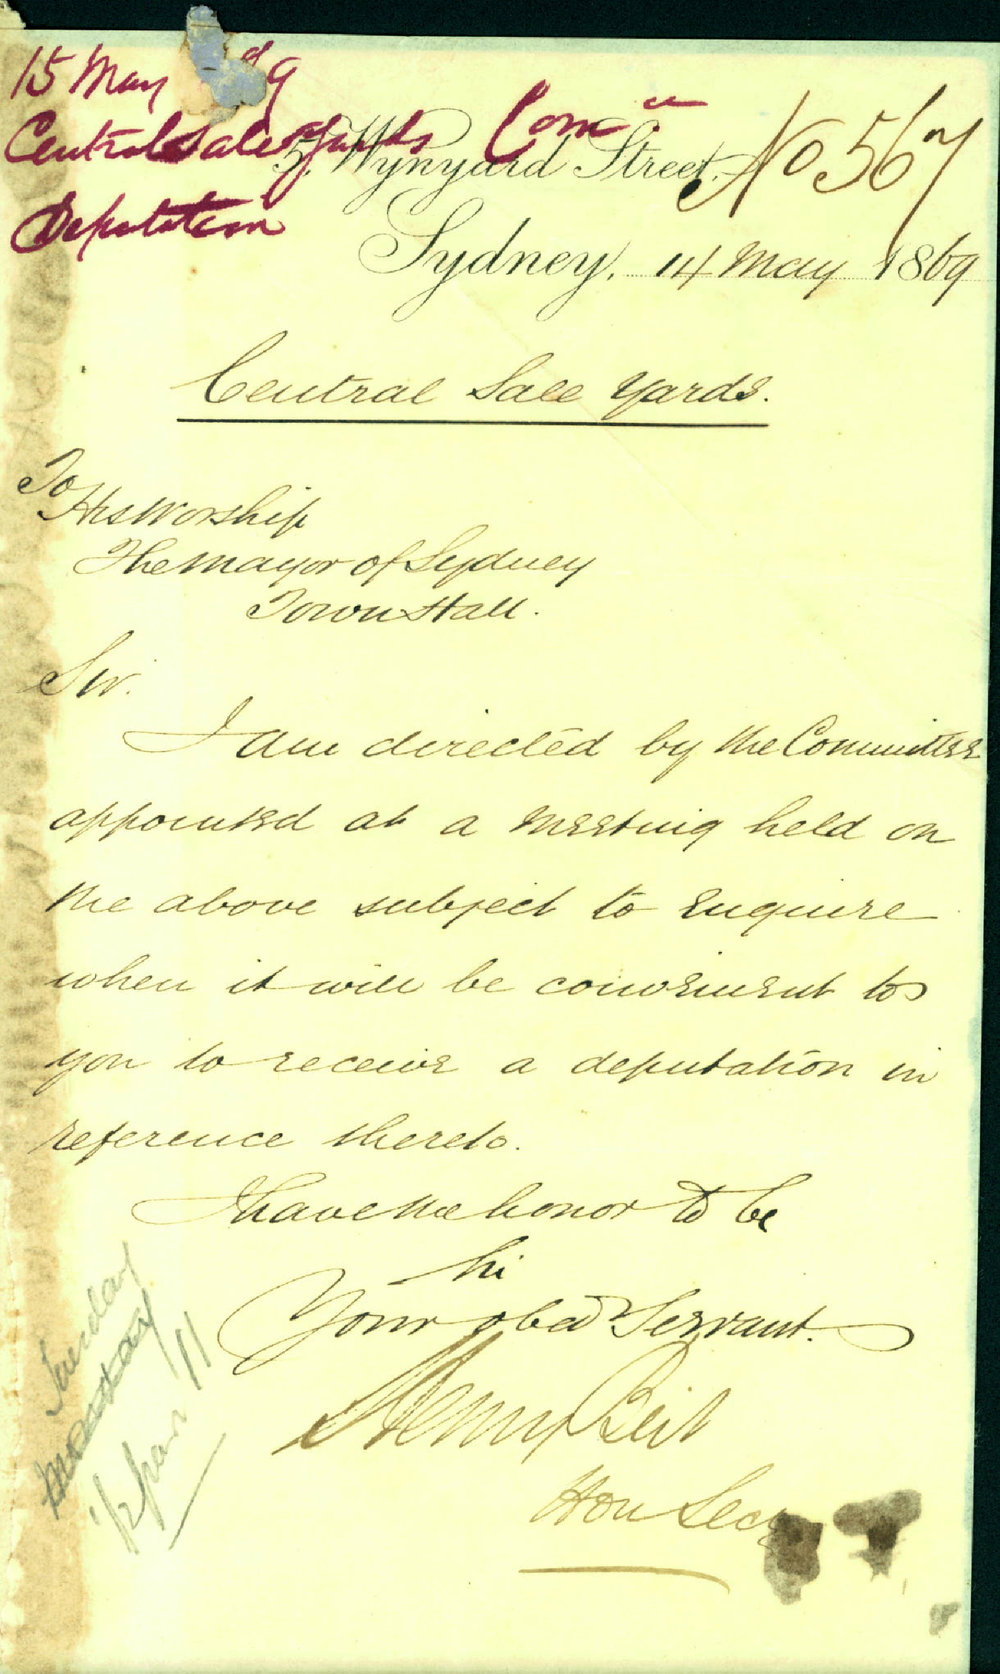 15 May 69
Central Sale Yards Com^ee
Deputation
No 567
5, Wynyard Street,
Sydney, 14 May 1869
Central Sale Yards.
To
His Worship
The Mayor of Sydney
Town Hall.
Sir.
I am directed by the Committee
appointed at a meeting held on
the above subject to enquire
when it will be convenient to
you to receive a deputation in
reference thereto.
I have the honor to be
Sir
Your obed Servant.
Henry Beit
Hon Secy
Tuesday
Monday
½ past 11